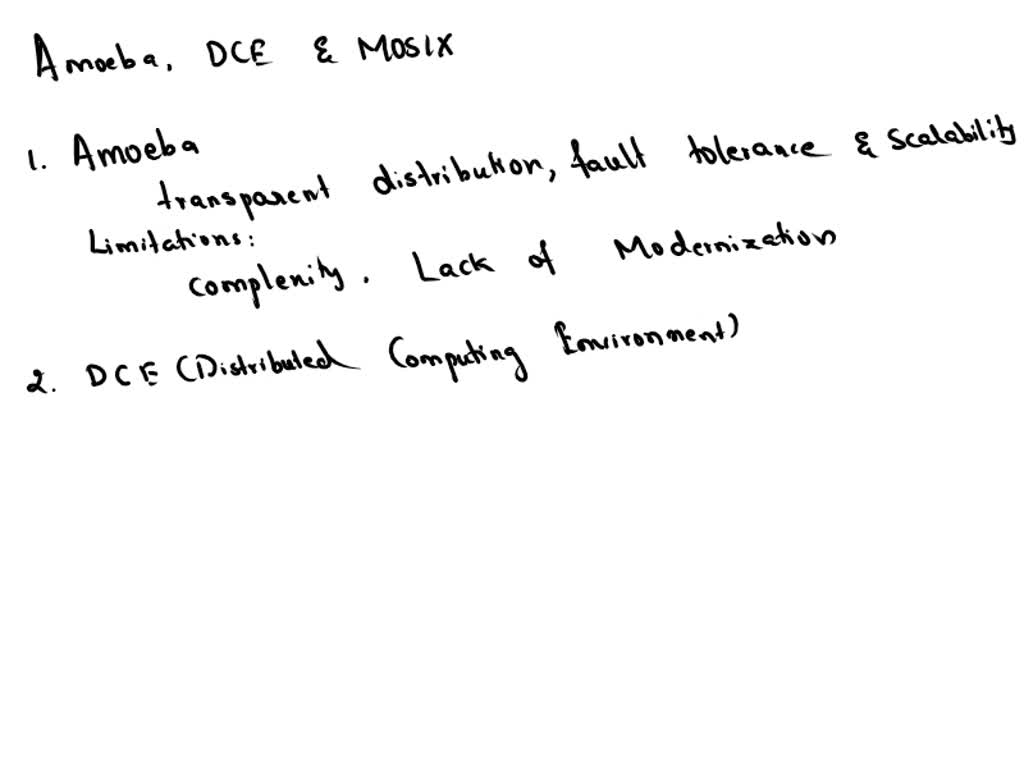 Amoeba, DCE & MOSIX
1. Amoeba
transparent distribution, fault tolerance & scalability
Limitations:
Complenity. Lack of Modernization
2. DCE (Distributed Computing Environment)